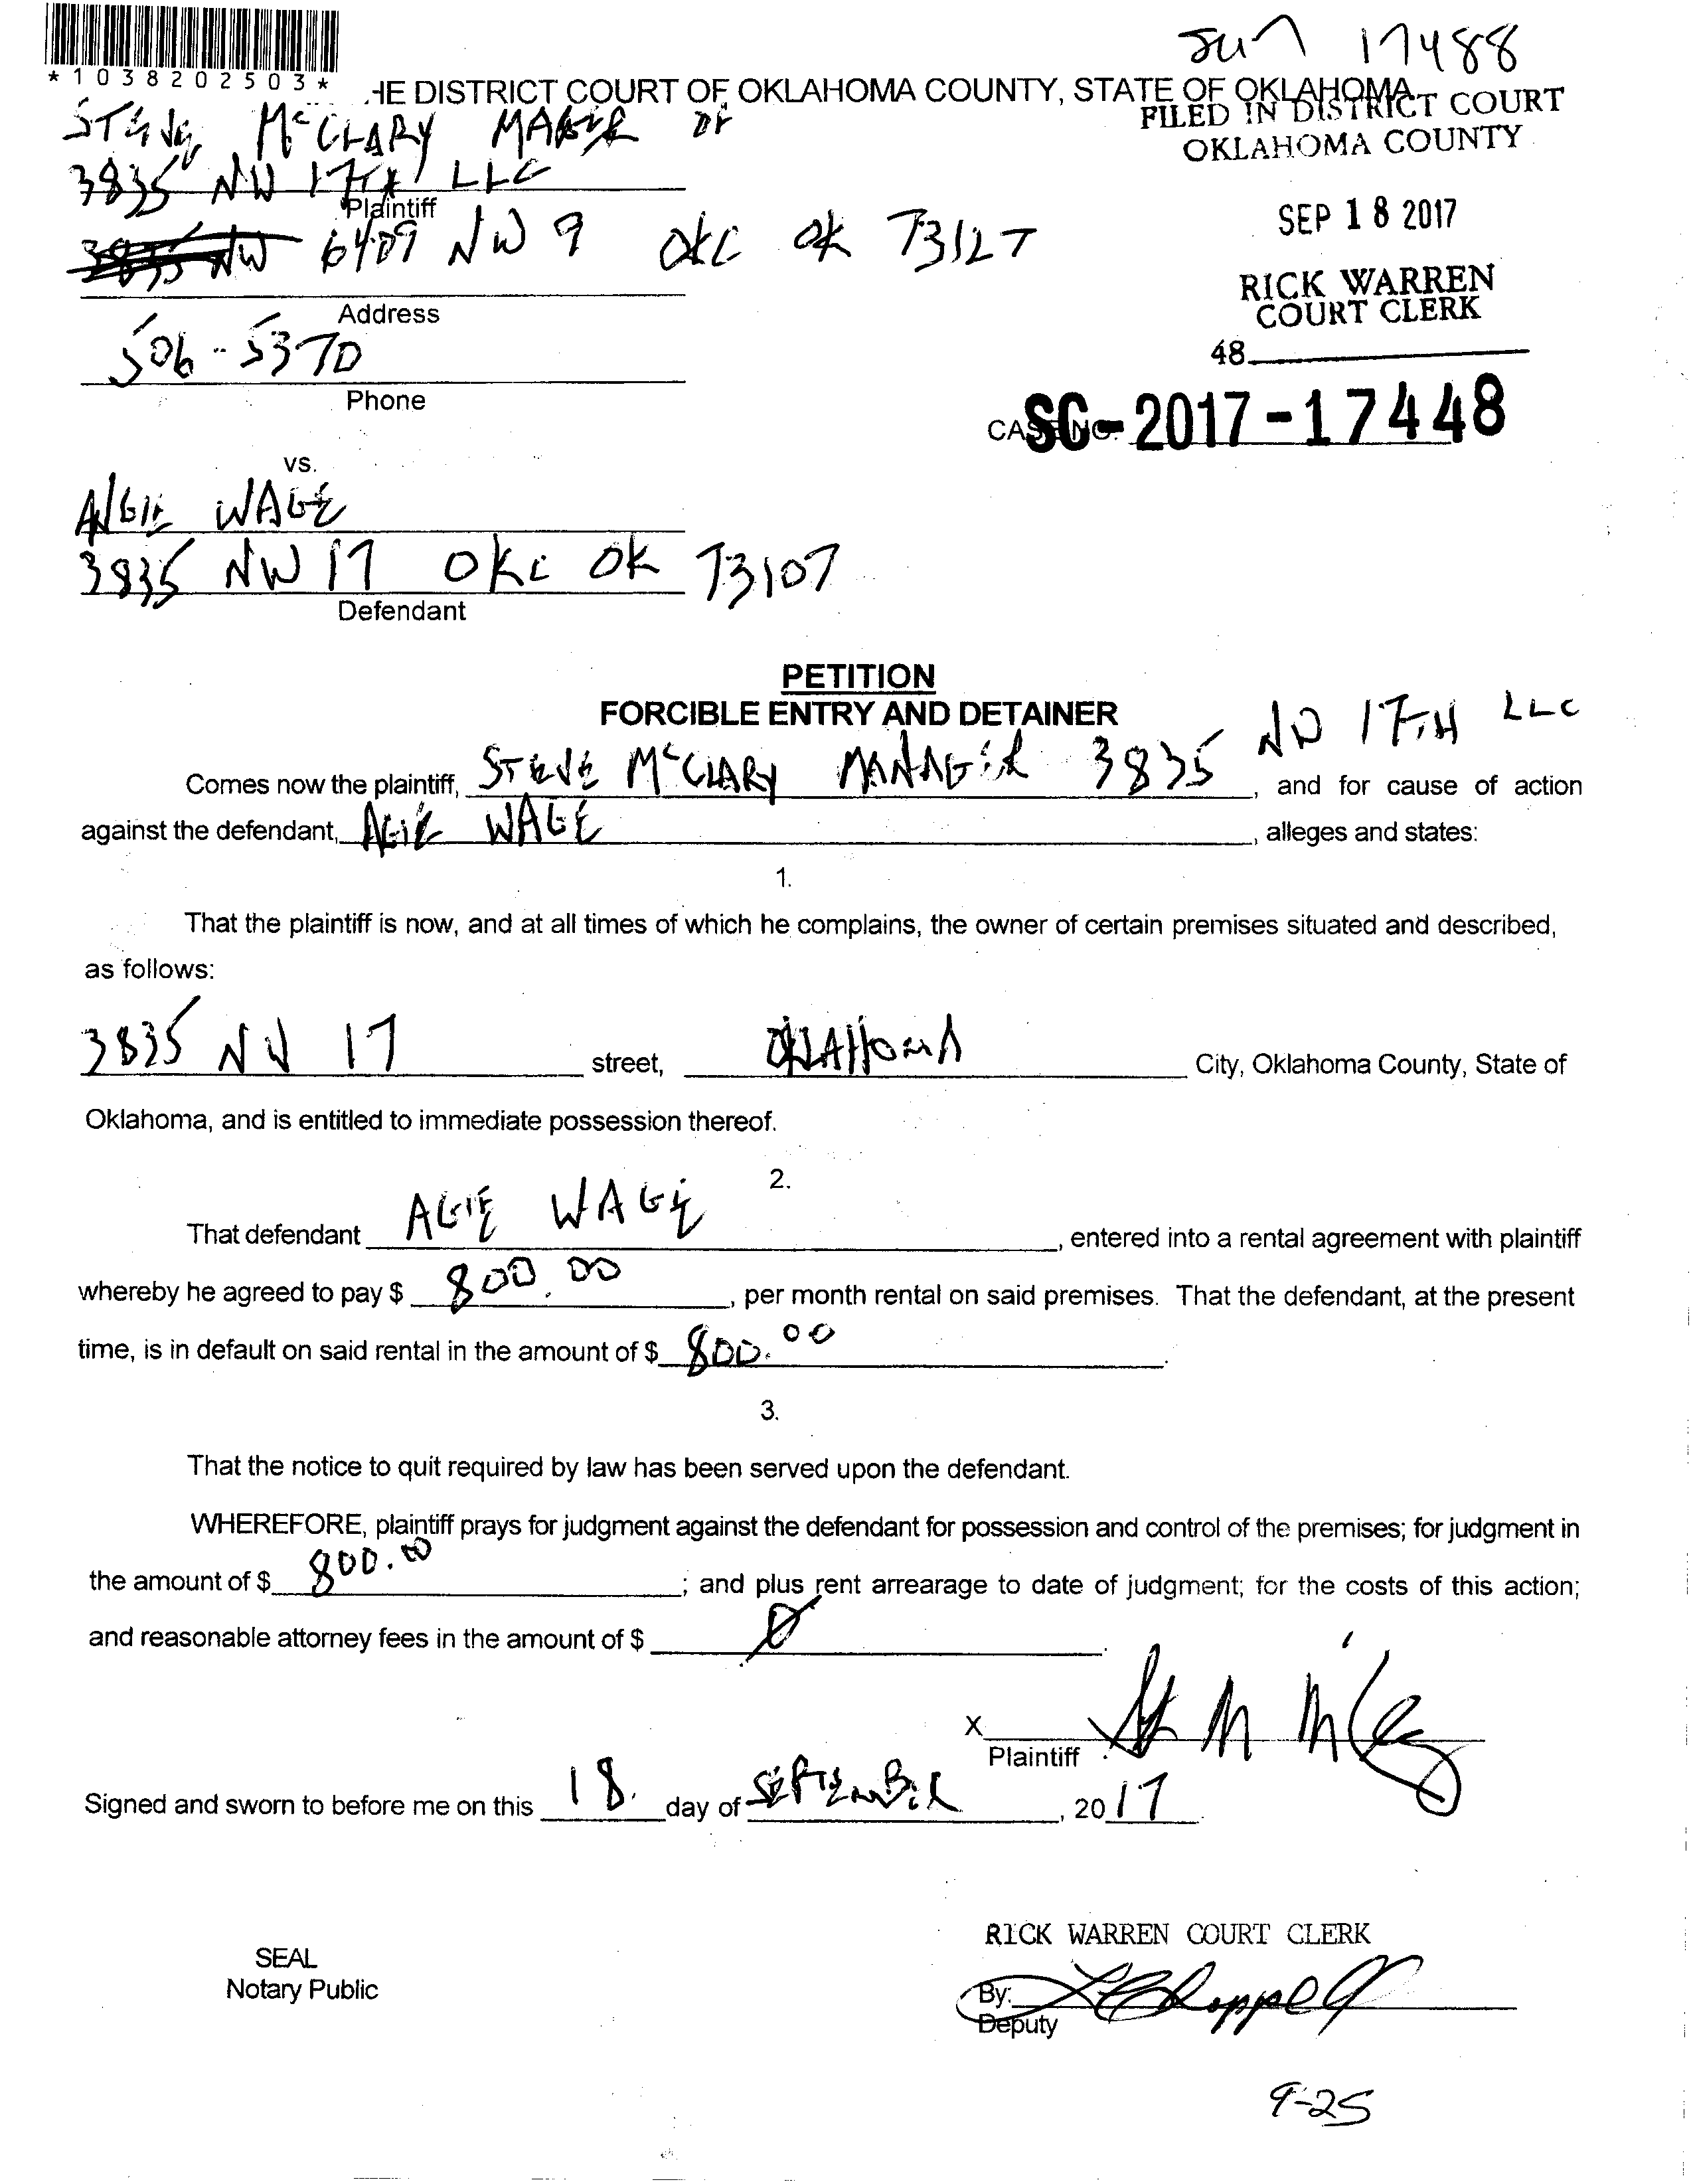 17488
*1038202503*
HE DISTRICT COURT OF OKLAHOMA COUNTY, STATE OF OKLAHOMA
FILED IN DISTRICT COURT
OKLAHOMA COUNTY
STEVE McCLARY
3835 NW 17TH LLC
Plaintiff
SEP 18 2017
6409 NW 9 OKC OK 73127
Address
RICK WARREN
COURT CLERK
48
506-5370
Phone
CASE NO. SC-2017-17448
vs.
ANGIE WAGE
3835 NW 17 OKC OK 73107
Defendant
PETITION
FORCIBLE ENTRY AND DETAINER
Comes now the plaintiff, STEVE McCLARY MANAGER 3835 NW 17TH LLC, and for cause of action
against the defendant, AGIE WAGE, alleges and states:
1.
That the plaintiff is now, and at all times of which he complains, the owner of certain premises situated and described,
as follows:
3835 NW 17 street, OKLAHOMA City, Oklahoma County, State of
Oklahoma, and is entitled to immediate possession thereof.
2.
That defendant AGIE WAGE, entered into a rental agreement with plaintiff
whereby he agreed to pay $ 800.00, per month rental on said premises. That the defendant, at the present
time, is in default on said rental in the amount of $ 800.00.
3.
That the notice to quit required by law has been served upon the defendant.
WHEREFORE, plaintiff prays for judgment against the defendant for possession and control of the premises; for judgment in
the amount of $ 800.00; and plus rent arrearage to date of judgment; for the costs of this action;
and reasonable attorney fees in the amount of $ Ø.
X
Plaintiff
Signed and sworn to before me on this 18. day of SEPTEMBER, 2017
RICK WARREN COURT CLERK
SEAL
Notary Public
By:
Deputy
9-25